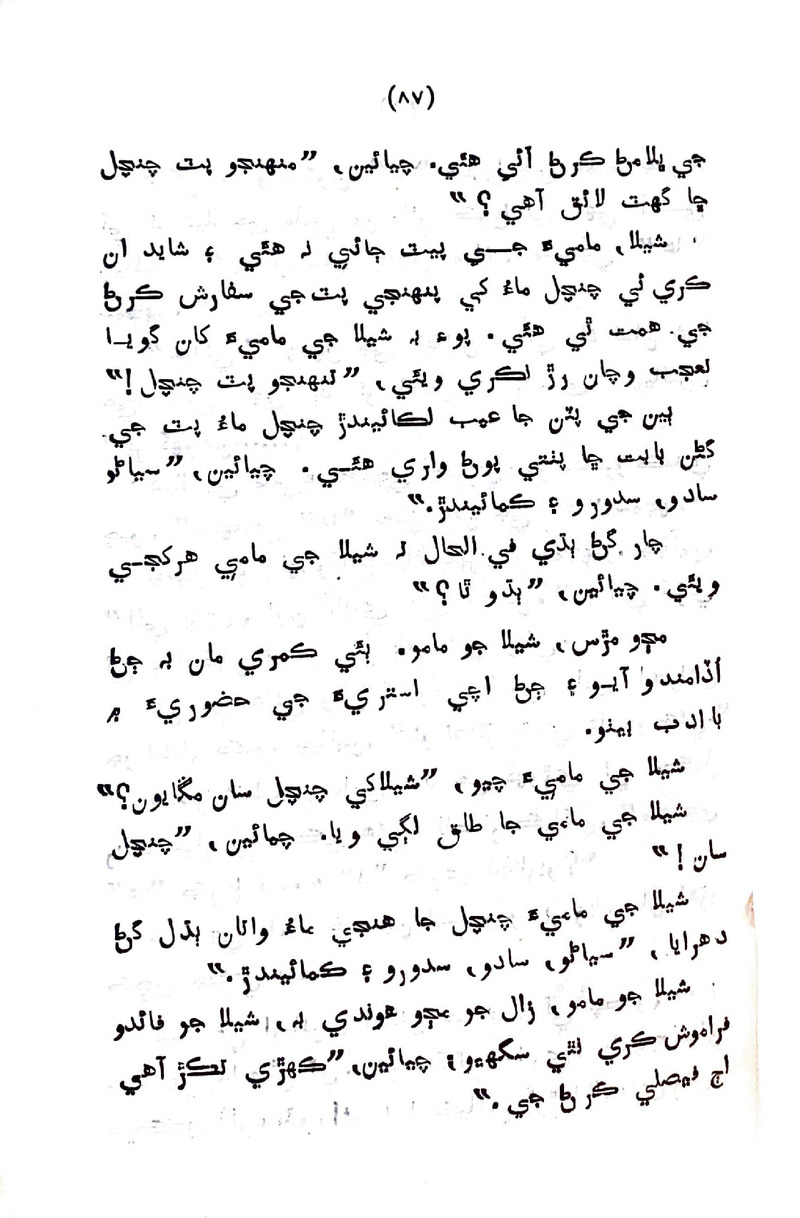 (٨٧)
جي ڀلامڻ ڪرڻ آئي هئي. چيائين، ”منهنجو پٽ چنچل
ڇا گهٽ لائق آهي؟“
شيلا، ماميءَ جي پيٽ ڄائي نہ هئي ۽ شايد ان
ڪري ئي چنچل ماءُ کي پنهنجي پٽ جي سفارش ڪرڻ
جي همت ٿي هئي. پوءِ بہ شيلا جي ماميءَ کان گويا
تعجب وچان رڙ نڪري ويئي، ”تنهنجو پٽ چنچل!“
ٻين جي پٽن جا عيب لڪائيندڙ چنچل ماءُ پٽ جي
گڻن بابت ڇا پنتي پوڻ واري هئي. چيائين، ”سياڻو
سادو، سدورو ۽ ڪمائيندڙ.“
چار گڻ ٻڌي في الحال تہ شيلا جي مامي هرکجي
ويئي. چيائين، ”ٻڌو ٿا؟“
مڇو مڙس، شيلا جو مامو. ٻئي ڪمري مان بہ ڄڻ
اُڏامندو آيو ۽ ڄڻ اچي استريءَ جي حضوريءَ ۾
باادب بيٺو.
شيلا جي ماميءَ چيو، ”شيلا کي چنچل سان مڱايون؟“
شيلا جي مامي جا طاق لڳي ويا. چيائين، ”چنچل
سان!“
شيلا جي ماميءَ چنچل جا هنجي ماءُ واتان ٻڌل گڻ
دهرايا، ”سياڻو، سادو، سدورو ۽ ڪمائيندڙ.“
شيلا جو مامو، زال جو مڇو هوندي بہ، شيلا جو فائدو
فراموش ڪري نٿي سگهيو؛ چيائين، ”ڪهڙي تڪڙ آهي
اڄ فيصلي ڪرڻ جي.“